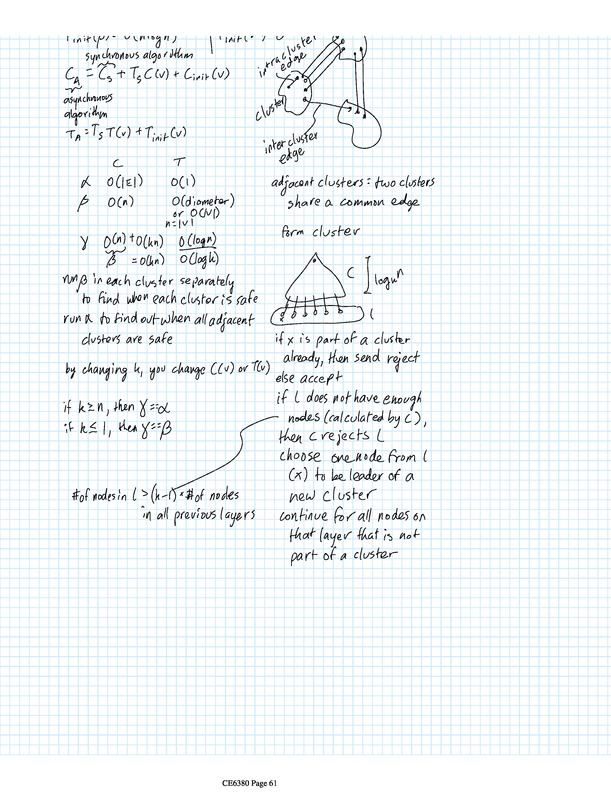 synchronous algorithm
C_A = C_S + T_S C(ν) + C_init(ν)
asynchronous
algorithm
T_A = T_S T(ν) + T_init(ν)
C T
α O(|E|) O(1)
β O(n) O(diameter)
or O(|V|)
n=|V|
γ O(n) + O(kn) O(log n)
β = O(kn) O(log k)
run β in each cluster separately
to find when each cluster is safe
run α to find out when all adjacent
clusters are safe
by changing k, you change C(ν) or T(ν)
if k ≥ n, then γ == α
if k ≤ 1, then γ == β
# of nodes in l > (k-1) * # of nodes
in all previous layers
intracluster
edge
cluster
intercluster
edge
adjacent clusters = two clusters
share a common edge
form cluster
C
l
if x is part of a cluster
already, then send reject
else accept
if l does not have enough
nodes (calculated by C),
then C rejects l
choose one node from l
(x) to be leader of a
new cluster
continue for all nodes on
that layer that is not
part of a cluster
CE6380 Page 61